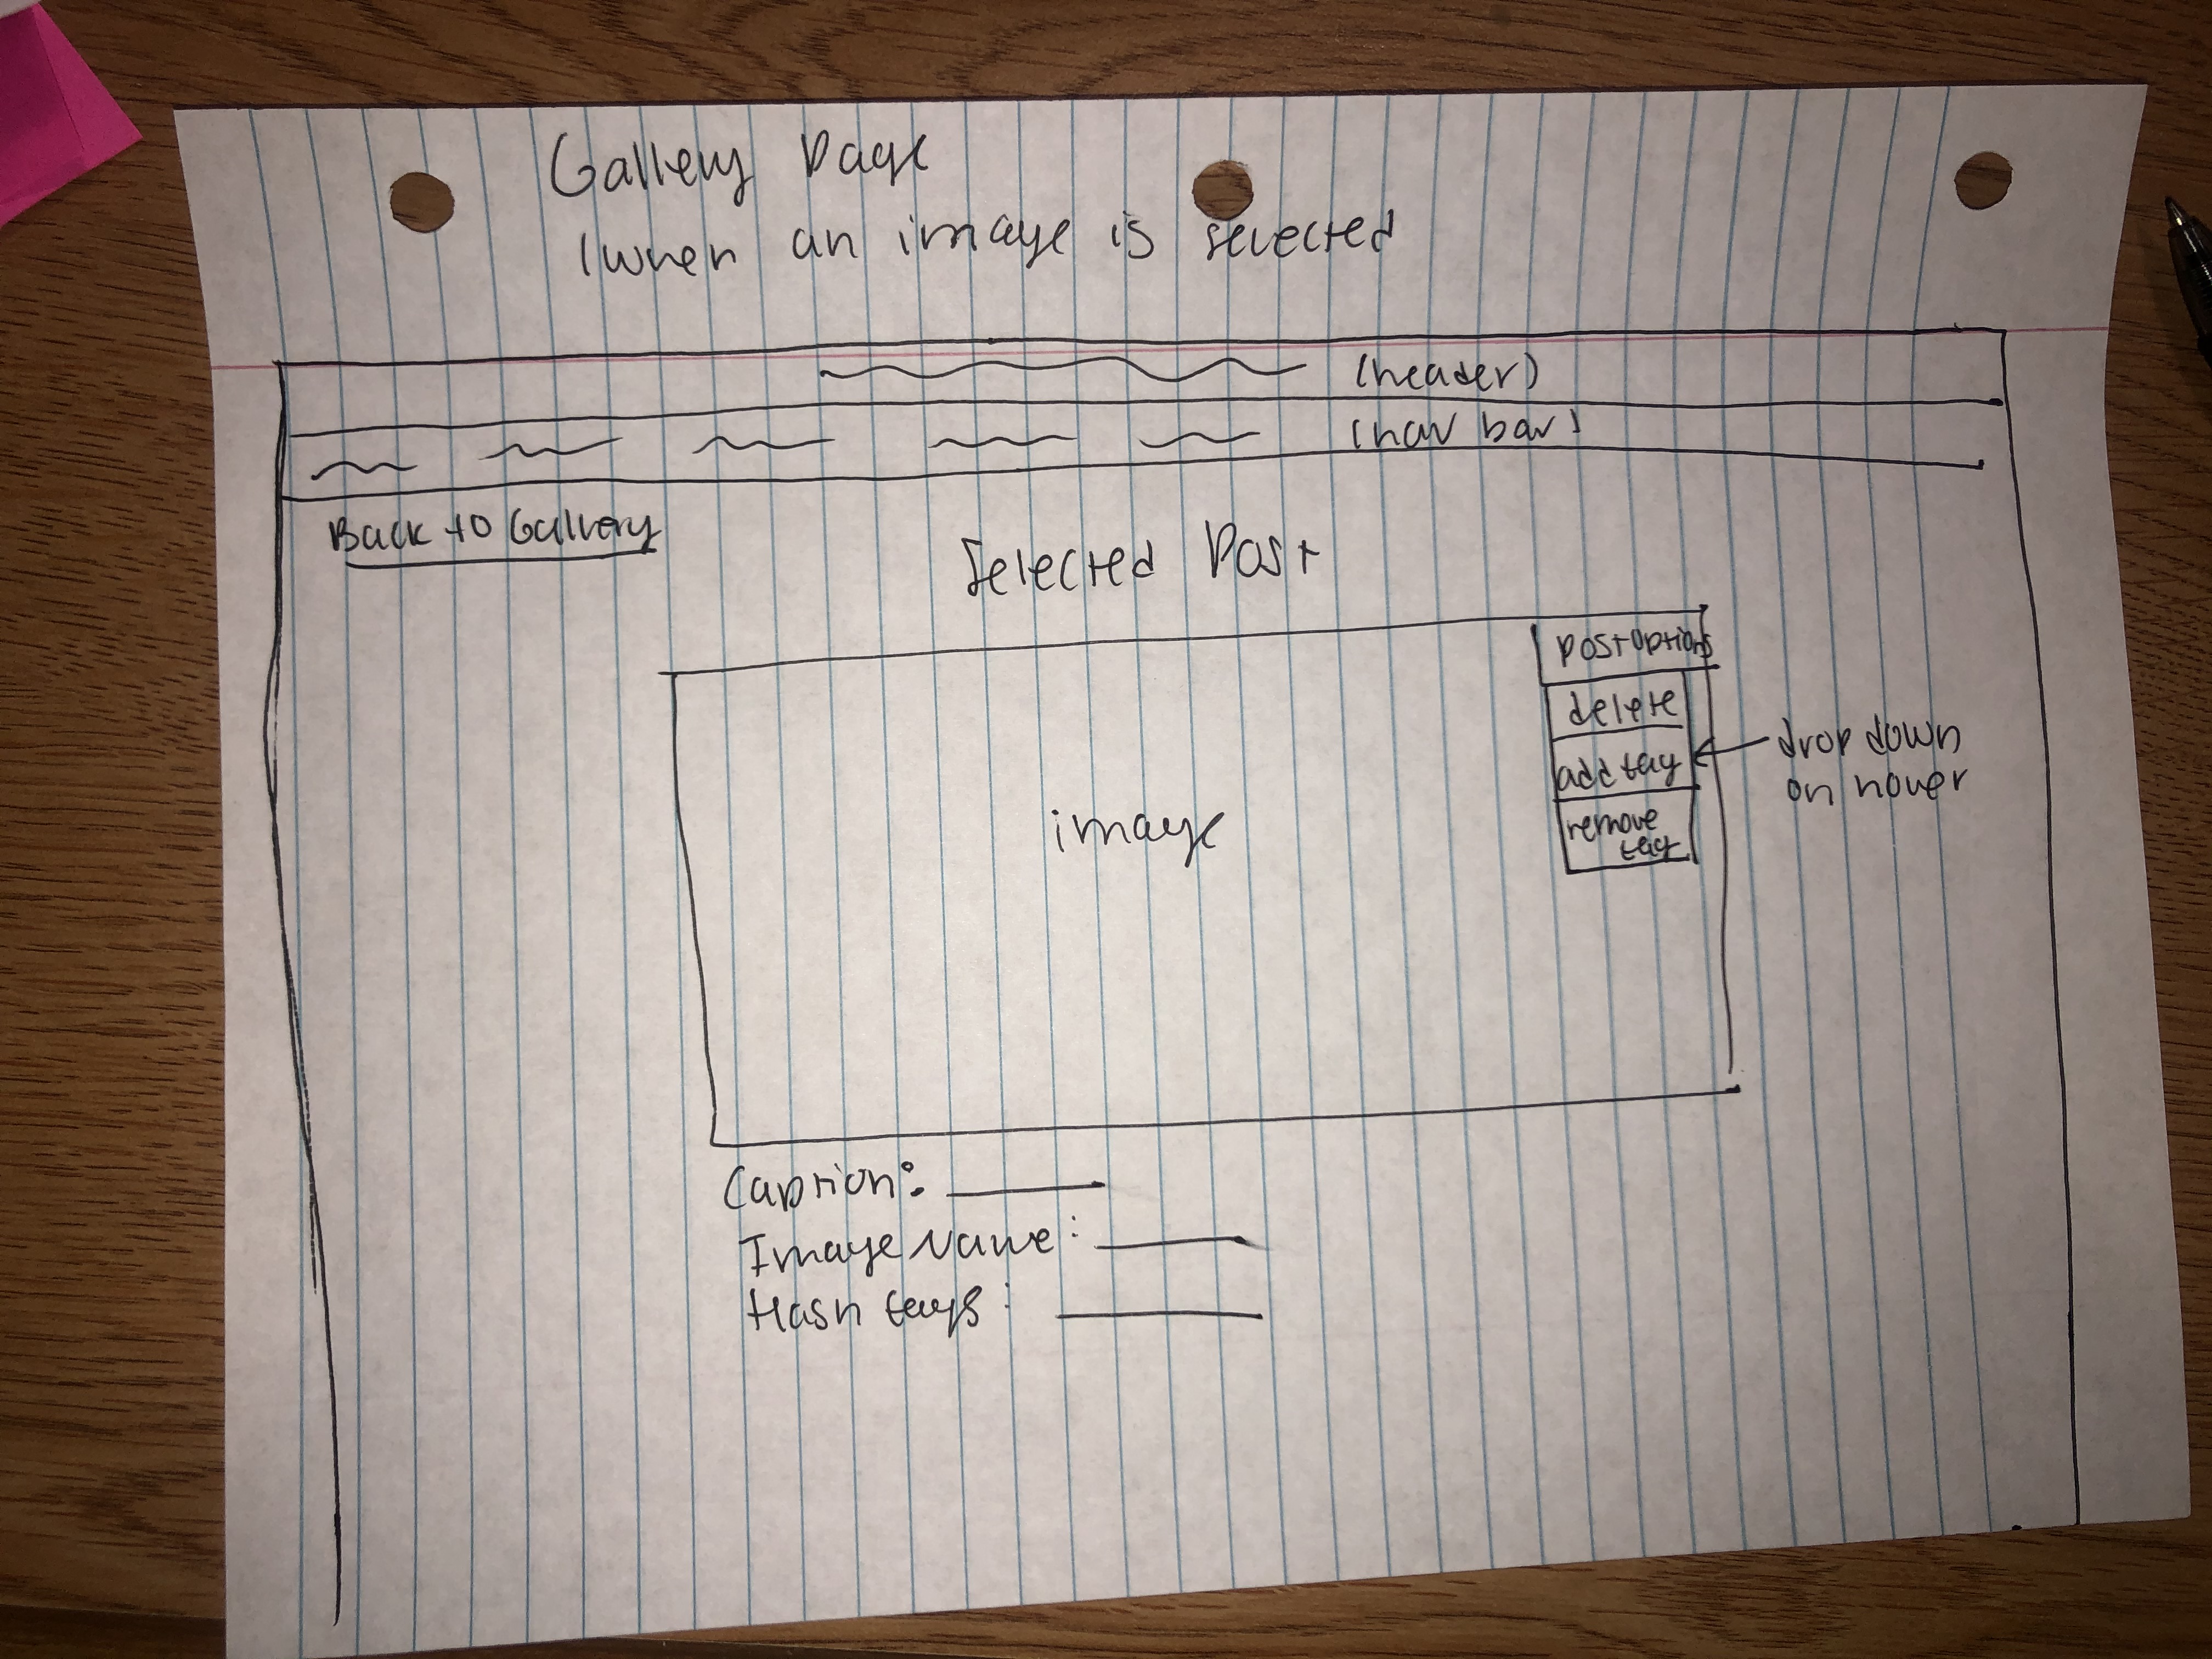 Gallery page
(when an image is selected
(header)
(nav bar)
Back to Gallery
Selected Post
post options
delete
add tag
remove
tag
drop down
on hover
image
Caption:
Image Name:
Hash tags: